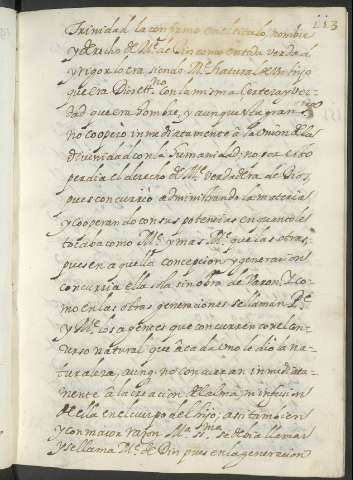 113
Trinidad la confirmo en el titulo, nombre
y derecho de M.e de Dios como en toda verdad
y rigor lo era, siendo M.e natural de un hijo
que era Dios ett.no con la misma certeza y ver=
dad que era hombre, y aunque esta gran s.ra
no coopero inmediatamente a la Union de la
divinidad con la humanidad; no por esto
perdia el derecho de M.e verdadera de Dios,
pues concurrio administrando la materia
y cooperando con sus potencias en quanto le
tocaba como M.e y mas M.e que las otras,
pues en aquella concepcion y generacion
concurria ella sola sin obra de Varon. Y co=
mo en las otras generaciones se llaman P.e
y M.e los agentes que concurren con el con=
curso natural que a cada uno le dio a na=
turaleza, aunq. no concurran inmediata=
mente a la creacion del alma, ni infusion
de ella en el cuerpo del hijo; asi tambien
y con mayor razon Ma. ss.ma se debia llamar
y se llama M.e de Dios, pues en la generacion